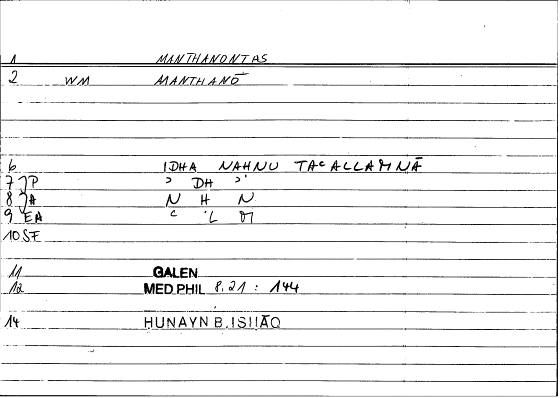 1 MANTHANONTAS
2 WM MANTHANŌ
6 IDHA NAHNU TAᶜALLAMNĀ
7 JP ʾ DH ʾ
8 JA N H N
9 EA ᶜ L M
10 SE
11 GALEN
12 MED PHIL 8.21 : 144
14 HUNAYN B. ISḤĀQ